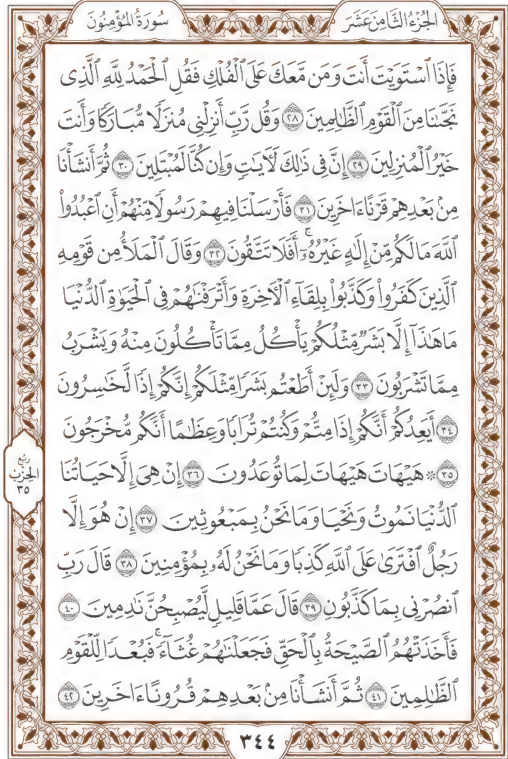 الجُزْءُ الثَّامِنَ عَشَرَ
سُورَةُ المُؤْمِنُونَ
فَإِذَا ٱسْتَوَيْتَ أَنتَ وَمَن مَّعَكَ عَلَى ٱلْفُلْكِ فَقُلِ ٱلْحَمْدُ لِلَّهِ ٱلَّذِى
نَجَّىٰنَا مِنَ ٱلْقَوْمِ ٱلظَّٰلِمِينَ ٢٨ وَقُل رَّبِّ أَنزِلْنِى مُنزَلًا مُّبَارَكًا وَأَنتَ
خَيْرُ ٱلْمُنزِلِينَ ٢٩ إِنَّ فِى ذَٰلِكَ لَءَايَٰتٍ وَإِن كُنَّا لَمُبْتَلِينَ ٣٠ ثُمَّ أَنشَأْنَا
مِنۢ بَعْدِهِمْ قَرْنًا ءَاخَرِينَ ٣١ فَأَرْسَلْنَا فِيهِمْ رَسُولًا مِّنْهُمْ أَنِ ٱعْبُدُوا۟
ٱللَّهَ مَا لَكُم مِّنْ إِلَٰهٍ غَيْرُهُۥٓ ۚ أَفَلَا تَتَّقُونَ ٣٢ وَقَالَ ٱلْمَلَأُ مِن قَوْمِهِ
ٱلَّذِينَ كَفَرُوا۟ وَكَذَّبُوا۟ بِلِقَآءِ ٱلْءَاخِرَةِ وَأَتْرَفْنَٰهُمْ فِى ٱلْحَيَوٰةِ ٱلدُّنْيَا
مَا هَٰذَآ إِلَّا بَشَرٌ مِّثْلُكُمْ يَأْكُلُ مِمَّا تَأْكُلُونَ مِنْهُ وَيَشْرَبُ
مِمَّا تَشْرَبُونَ ٣٣ وَلَئِنْ أَطَعْتُم بَشَرًا مِّثْلَكُمْ إِنَّكُمْ إِذًا لَّخَٰسِرُونَ
٣٤ أَيَعِدُكُمْ أَنَّكُمْ إِذَا مِتُّمْ وَكُنتُمْ تُرَابًا وَعِظَٰمًا أَنَّكُم مُّخْرَجُونَ
٣٥ ۞ هَيْهَاتَ هَيْهَاتَ لِمَا تُوعَدُونَ ٣٦ إِنْ هِىَ إِلَّا حَيَاتُنَا
ٱلدُّنْيَا نَمُوتُ وَنَحْيَا وَمَا نَحْنُ بِمَبْعُوثِينَ ٣٧ إِنْ هُوَ إِلَّا
رَجُلٌ ٱفْتَرَىٰ عَلَى ٱللَّهِ كَذِبًا وَمَا نَحْنُ لَهُۥ بِمُؤْمِنِينَ ٣٨ قَالَ رَبِّ
ٱنصُرْنِى بِمَا كَذَّبُونِ ٣٩ قَالَ عَمَّا قَلِيلٍ لَّيُصْبِحُنَّ نَٰدِمِينَ ٤٠
فَأَخَذَتْهُمُ ٱلصَّيْحَةُ بِٱلْحَقِّ فَجَعَلْنَٰهُمْ غُثَآءً ۚ فَبُعْدًا لِّلْقَوْمِ
ٱلظَّٰلِمِينَ ٤١ ثُمَّ أَنشَأْنَا مِنۢ بَعْدِهِمْ قُرُونًا ءَاخَرِينَ ٤٢
رُبُع
الحِزْب
٣٥
٣٤٤